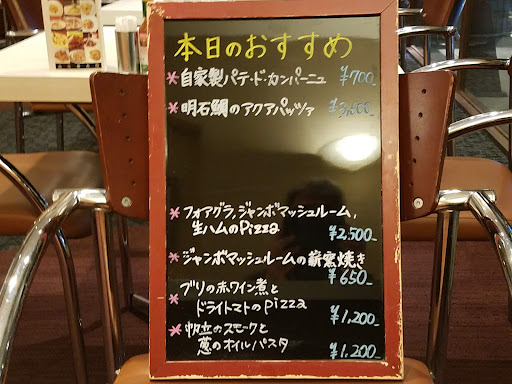 本日のおすすめ
* 自家製パテ・ド・カンパーニュ ¥700_
* 明石鯛のアクアパッツァ ¥3,600_
* フォアグラ,ジャンボマッシュルーム,
生ハムのPizza ¥2,500_
* ジャンボマッシュルームの薪窯焼き
¥650_
* ブリのホワイン煮と
ドライトマトのpizza ¥1,200_
* 帆立のスモークと
葱のオイルパスタ ¥1,200_